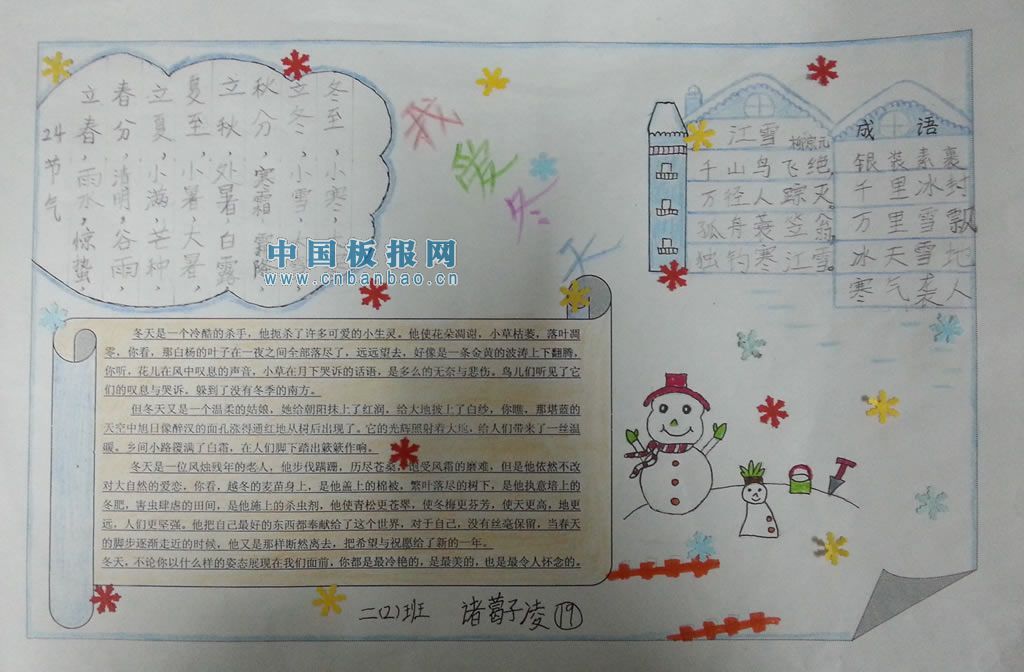 24节气
立春,雨水,惊蛰
春分,清明,谷雨
立夏,小满,芒种,
夏至,小暑,大暑,
立秋,处暑白露
秋分,寒霜
立冬,小雪,
冬至,小寒,
我爱冬天
中国板报网
www.cnbanbao.cn
江雪 柳宗元
千山鸟飞绝,
万径人踪灭。
孤舟蓑笠翁,
独钓寒江雪。
成语
银装素裹
千里冰封
万里雪飘
冰天雪地
寒气袭人
冬天是一个冷酷的杀手，他扼杀了许多可爱的小生灵。他使花朵凋谢，小草枯萎，落叶凋
零，你看，那白杨的叶子在一夜之间全部落尽了，远远望去，好像是一条金黄的波涛上下翻腾，
你听，花儿在风中叹息的声音，小草在月下哭诉的话语，是多么的无奈与悲伤。鸟儿们听见了它
们的叹息与哭诉。躲到了没有冬季的南方。
但冬天又是一个温柔的姑娘，她给朝阳抹上了红润，给大地披上了白纱，你瞧，那堪蓝的
天空中旭日像醉汉的面孔涨得通红地从树后出现了。它的光辉照射着大地，给人们带来了一丝温
暖。乡间小路覆满了白霜，在人们脚下踏出簌簌作响。
冬天是一位风烛残年的老人，他步伐蹒跚，历尽苍桑，饱受风霜的磨难，但是他依然不改
对大自然的爱恋，你看，越冬的麦苗身上，是他盖上的棉被，繁叶落尽的树下，是他执意培上的
冬肥，害虫肆虐的田间，是他施上的杀虫剂，他使青松更苍翠，使冬梅更芬芳，使天更高，地更
远，人们更坚强。他把自己最好的东西都奉献给了这个世界，对于自己，没有丝毫保留，当春天
的脚步逐渐走近的时候，他又是那样断然离去，把希望与祝愿给了新的一年。
冬天，不论你以什么样的姿态展现在我们面前，你都是最冷艳的，是最美的，也是最令人怀念的。
二(2)班 诸葛子凌 19